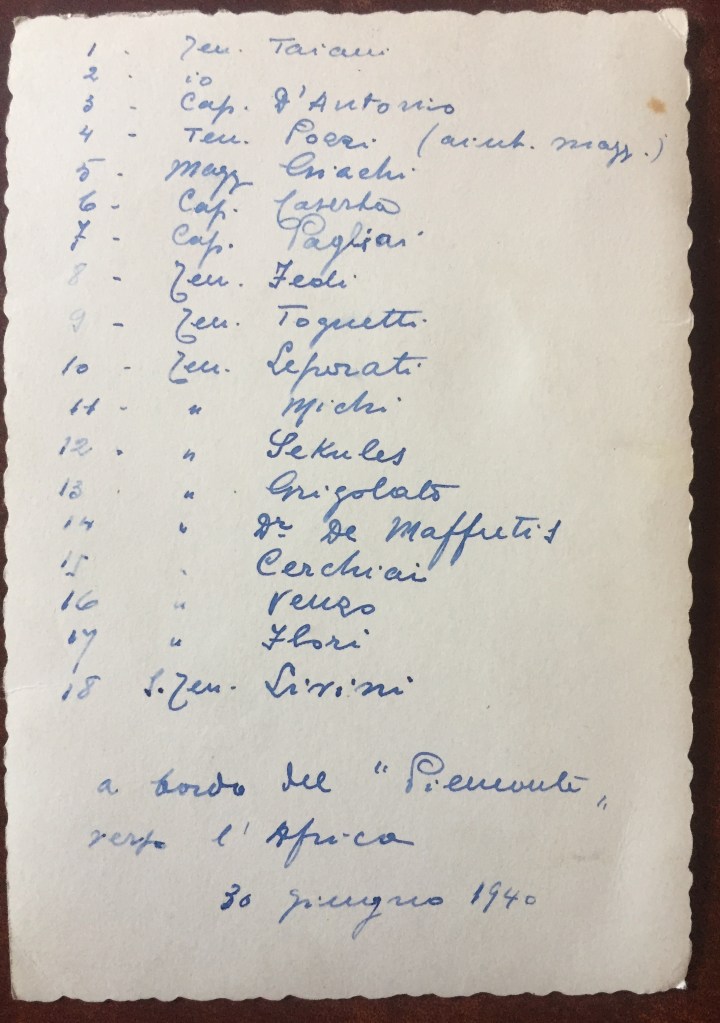 1 - Ten. Taiani
2 - io
3 - Cap. D'Antonio
4 - Ten. Pozzi (aiut. magg.)
5 - Magg Griachi
6 - Cap. Caserta
7 - Cap. Pagliai
8 - Ten. Fedi
9 - Ten. Tognetti
10 - Ten. Leporati
11 - " Michi
12 - " Sekules
13 - " Grigolato
14 " Dr. De Maffutis
15 " Cerchiai
16 " Venzo
17 " Flori
18 S. Ten. Livini
a bordo del "Piemonte"
verso l'Africa
30 giugno 1940